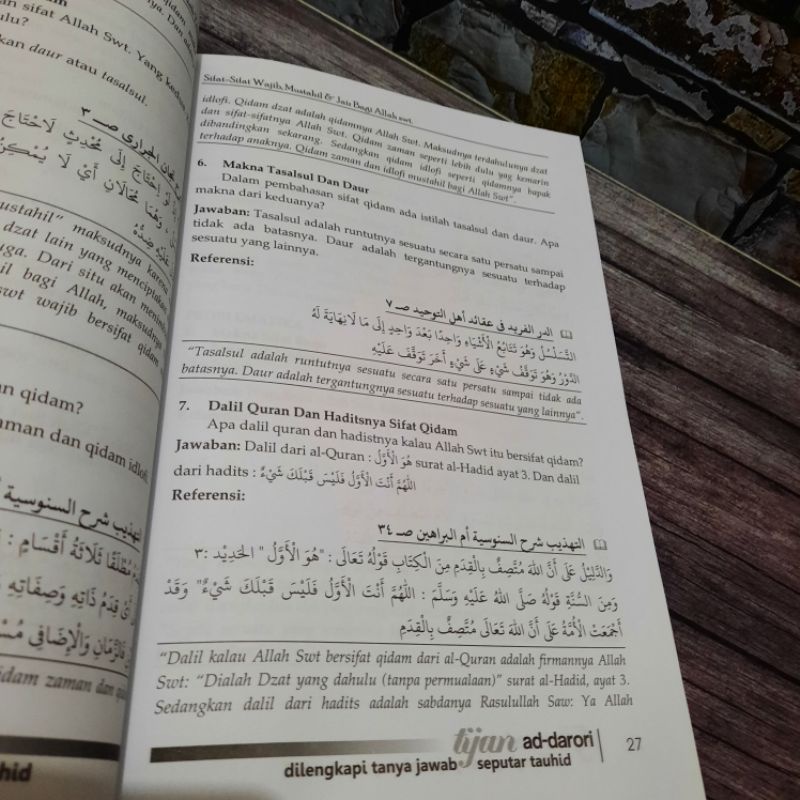 sifat Allah Swt. Yang
lulu?
kan daur atau tasalsul.
صـ ٣
إِحْتَاجَ إِلَى مُحْدِثٍ لَاحْتَاجَ
وَهُمَا مُحَالَانِ أَيْ لَا يُمْكِنُ
mustahil” maksudnya karena
dzat lain yang menciptakan
uga. Dari situ akan menimb
il bagi Allah, maksudnya
swt wajib bersifat qidam
n qidam?
aman dan qidam idlofi.
التهذيب شرح السنوسية
مُطْلَقًا ثَلَاثَةُ أَقْسَامٍ :
قِدَمُ ذَاتِهِ وَصِفَاتِهِ
فَالزَّمَانِ وَالْإِضَافِى
idam zaman dan
hid
Sifat-Sifat Wajib, Mustahil & Jaiz Bagi Allah swt.
idlofi. Qidam dzat adalah qidamnya Allah Swt. Maksudnya terdahulunya dzat
dan sifat-sifatnya Allah Swt. Qidam zaman seperti lebih dulu yag kemarin
dibandingkan sekarang. Sedangkan qidam idlofi seperti qidamnya bapak
terhadap anaknya. Qidam zaman dan idlofi mustahil bagi Allah Swt”.
6. Makna Tasalsul Dan Daur
Dalam pembahasan sifat qidam ada istilah tasalsul dan daur. Apa
makna dari keduanya?
Jawaban: Tasalsul adalah runtutnya sesuatu secara satu persatu sampai
tidak ada batasnya. Daur adalah tergantungnya sesuatu terhadap
sesuatu yang lainnya.
Referensi:
الدر الفريد فى عقائد أهل التوحيد صـ ٧
التَّسَلْسُلُ وَهُوَ تَتَابُعُ الْأَشْيَاءِ وَاحِدًا بَعْدَ وَاحِدٍ إِلَى مَا لَانِهَايَةَ لَهُ
الدَّوْرُ وَهُوَ تَوَقُّفُ شَيْءٍ عَلَى شَيْءٍ أَخَرَ تَوَقَّفَ عَلَيْهِ
“Tasalsul adalah runtutnya sesuatu secara satu persatu sampai tidak ada
batasnya. Daur adalah tergantungnya sesuatu terhadap sesuatu yang lainnya”.
7. Dalil Quran Dan Haditsnya Sifat Qidam
Apa dalil quran dan hadistnya kalau Allah Swt itu bersifat qidam?
Jawaban: Dalil dari al-Quran : هُوَ الْأَوَّلُ surat al-Hadid ayat 3. Dan dalil
dari hadits : اللهُمَّ أَنْتَ الْأَوَّلُ فَلَيْسَ قَبْلَكَ شَيْءٌ
Referensi:
التهذيب شرح السنوسية أم البراهين صـ ٣٤
وَالدَّلِيْلُ عَلَى أَنَّ اللهَ مُتَّصِفٌ بِالْقِدَمِ مِنَ الْكِتَابِ قَوْلُهُ تَعَالَى : "هُوَ الْأَوَّلُ" الحَدِيْد :٣
وَمِنَ السُّنَّةِ قَوْلُهُ صَلَّى اللهُ عَلَيْهِ وَسَلَّمَ : اللهُمَّ أَنْتَ الْأَوَّلُ فَلَيْسَ قَبْلَكَ شَيْءٌ" وَقَدْ
أَجْمَعَتِ الْأُمَّةُ عَلَى أَنَّ اللهَ تَعَالَى مُتَّصِفٌ بِالْقِدَمِ
“Dalil kalau Allah Swt bersifat qidam dari al-Quran adalah firmannya Allah
Swt: “Dialah Dzat yang dahulu (tanpa permualaan)” surat al-Hadid, ayat 3.
Sedangkan dalil dari hadits adalah sabdanya Rasulullah Saw: Ya Allah
tijan ad-darori 27
dilengkapi tanya jawab seputar tauhid